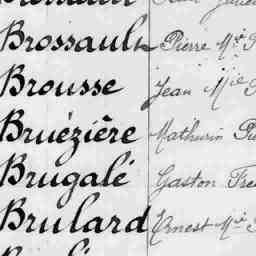 Brossault Pierre Mie
Brousse Jean Mie
Bruézière Mathurin
Brugalé Gaston
Brulard Ernest Mie